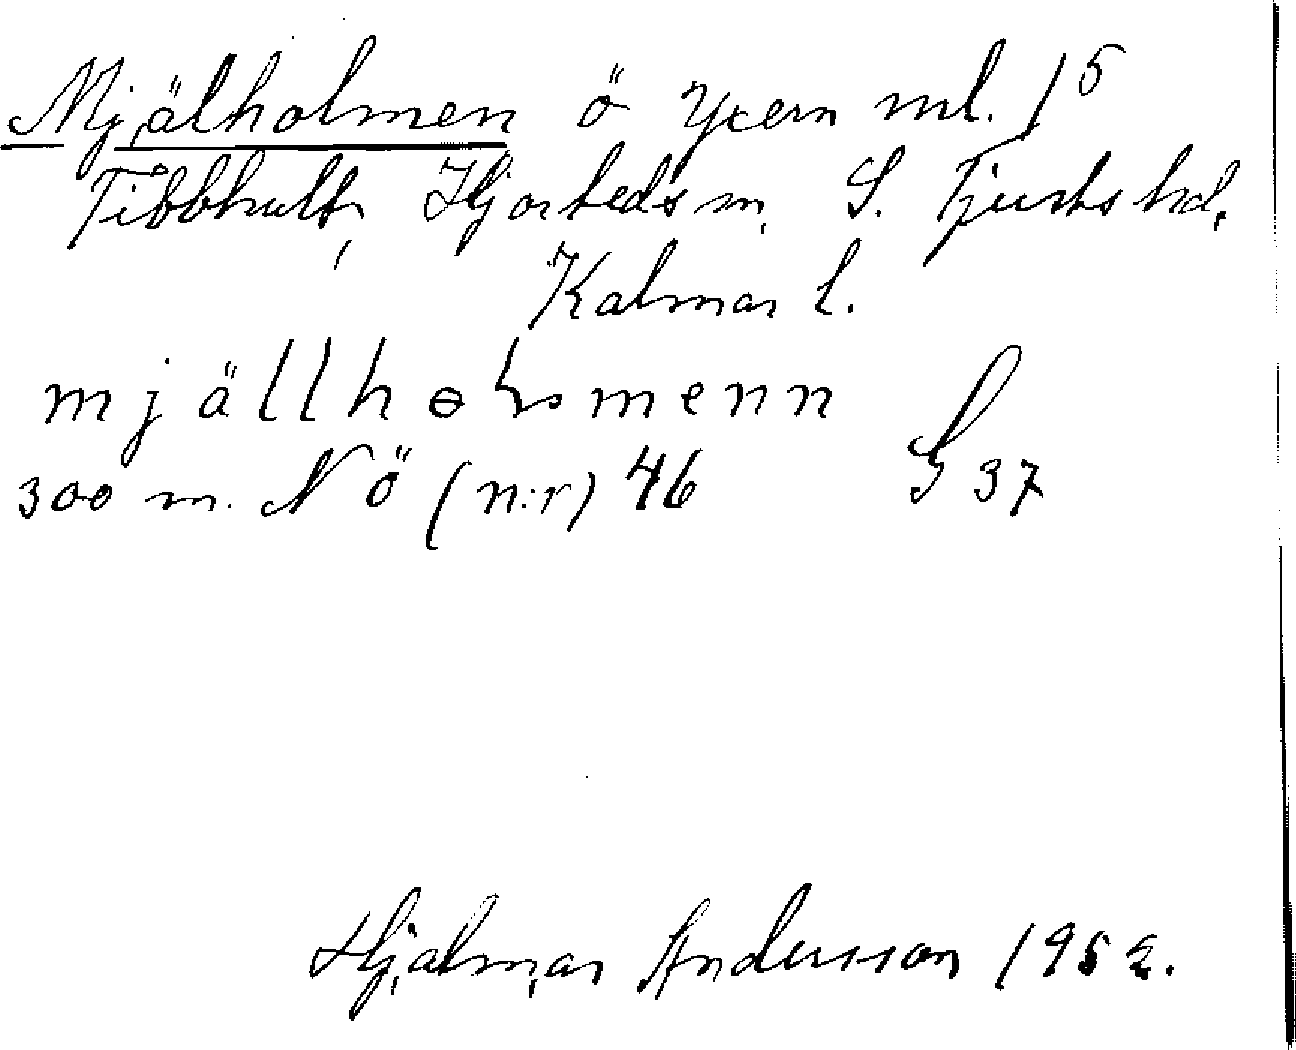 Mjälholmen ö Yxern ml. 15
Tibbhult, Hjorteds sn, S. Tjusts hd,
Kalmar l.
mjällholmenn
300 m. NÖ (n:r) 46 S 37
Hjalmar Andersson 1952.